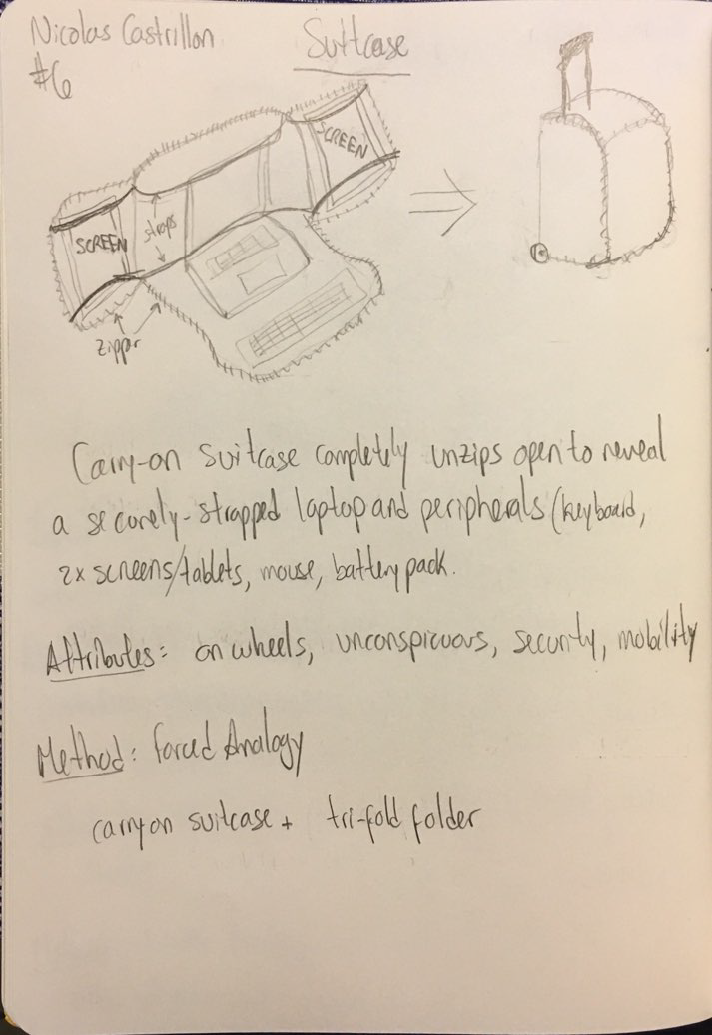 Nicolas Castrillon
#6
Suitcase
SCREEN
SCREEN
straps
zipper
Carry-on suitcase completely unzips open to reveal
a securely-strapped laptop and peripherals (keyboard,
2x screens/tablets, mouse, battery pack.
Attributes: on wheels, unconspicuous, security, mobility
Method: Forced Analogy
carry on suitcase + tri-fold folder